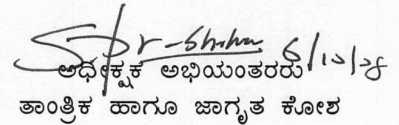 6/12/28
ಅಧೀಕ್ಷಕ ಅಭಿಯಂತರರು
ತಾಂತ್ರಿಕ ಹಾಗೂ ಜಾಗೃತ ಕೋಶ